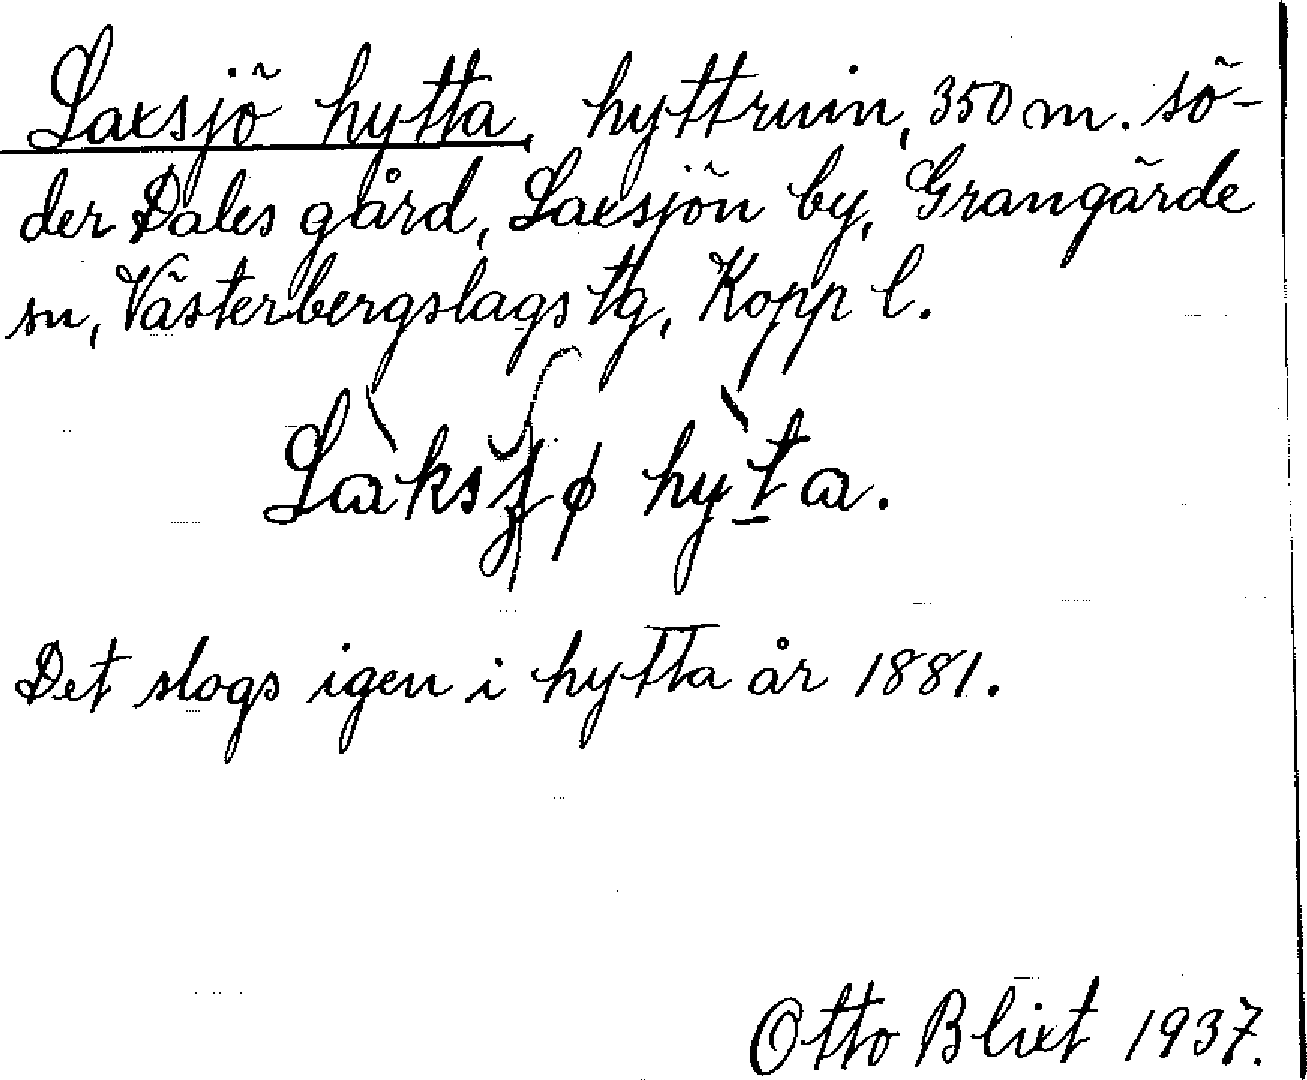 Laxsjö hytta, hyttruin, 350 m. sö-
der Dales gård, Laxsjön by, Grangärde
sn, Västerbergslags tg, Kopp l.
Làksʃø hỳta.
Det slogs igen i hytta år 1881.
Otto Blixt 1937.